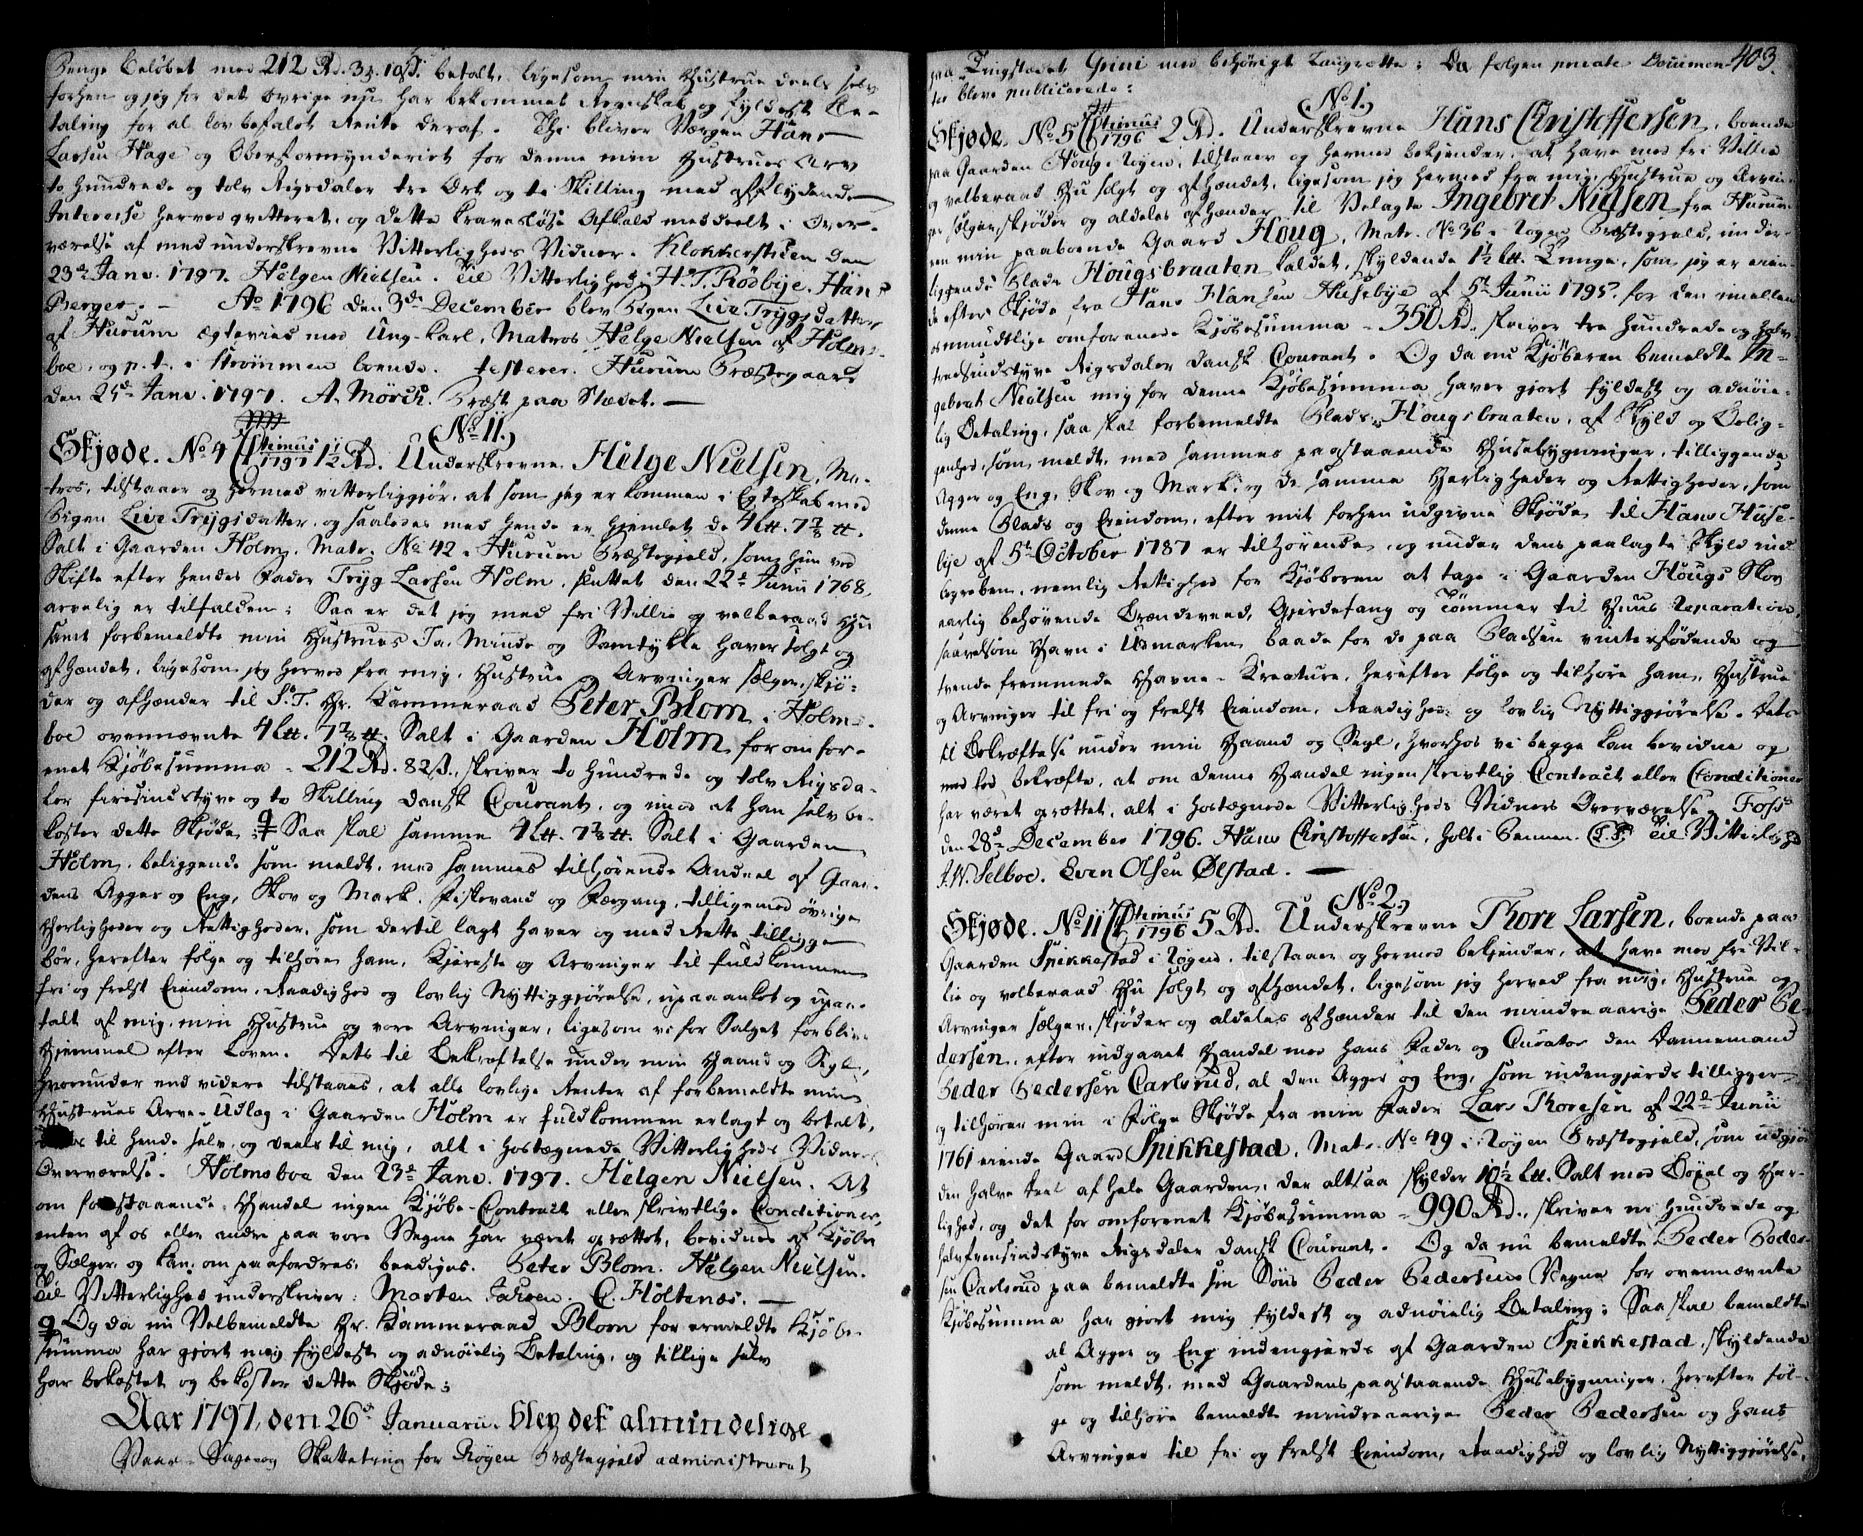 Penge beløbet med 212 Rd. 3 ß. 10 ß. betalt, ligesom min Hustrue deels selv
forhen og jeg for det øvrige nu har bekommet Regnskab og fyldest Be-
taling for al lovbefalet Rente deraf. Thi bliver Værgen Hans
Larsen Hage og Oberformynderiet for denne min Hustrues Arv
to Hundrede og tolv Rigsdaler tre Ort og ti Skilling med afflydende
Interesse herved qvitteret, og dette kravesløse Afkald meddeelt i Over-
værelse af medunderskrevne Vitterligheds Vidner. Klokkerstuen den
23de Janv. 1797. Helgen Nielsen. Til Vitterlighed H. T. Rødbye. Hans
Berger. — Ao 1796 den 3de December blev Pigen Live Trygsdatter
af Hurum ægteviet med Ung-Karl, Matros Helge Nielsen af Holms-
boe, og p. t. i Strømmen boende. testerer. Hurum Præstegaard
den 25de Janv. 1797. A. Mørch. Præst paa Stædet. —
No 11.
Skjøde. No 4 1797 1½ Rd. Underskrevne Helge Nielsen, Ma-
tros, tilstaaer og hermed vitterliggjør, at som jeg er kommen i Egteskab med
Pigen Live Trygsdatter, og saaledes med hende er hjemlet de 4 Ltt. 7⅞ tt.
Salt i Gaarden Holm, Matr. No 42 i Hurum Præstegjeld, som hun ved
Skifte efter hendes Fader Tryg Larsen Holm, sluttet den 22de Junii 1768,
arvelig er tilfalden; Saa er det jeg med fri Villie og velberaad Hu
samt forbemeldte min Hustrues Ja, Minde og Samtykke haver solgt og
afhændet, ligesom jeg herved fra mig, Hustrue og Arvinger sælger, skjø-
der og afhænder til S. T. Hr. Kammeraad Peter Blom i Holms-
boe ovennævnte 4 Ltt. 7⅞ tt. Salt i Gaarden Holm, for omfor-
enet Kjøbesumma 212 Rd. 82 ß., skriver to Hundrede og tolv Rigsda-
ler firesindstyve og to Skilling Dansk Courant, og imod at han selv be-
koster dette Skjøde; Saa skal samme 4 Ltt. 7⅞ tt. Salt i Gaarden
Holm, beliggende som meldt, med sammes tilhørende Andeel af Gaar-
dens Agger og Eng, Skov og Mark, Fiskevand og Færgang, tilligemed øvrige
Herligheder og Rettigheder, som dertil lagt haver og med Rette tilligge
bør, herefter følge og tilhøre ham, Kjereste og Arvinger til fuldkommen
fri og frelst Eiendom, Raadighed og lovlig Nyttiggjørelse, upaaanket og upaa-
talt af mig, min Hustrue og vore Arvinger, ligesom vi for Salget forblive
Hjemmel efter Loven. Dets til Bekræftelse under min Haand og Segl,
hvorunder end videre tilstaaes, at alle lovlige Renter af forbemeldte min
Hustrues Arve-Udlæg i Gaarden Holm er fuldkommen erlagt og betalt,
til hende selv, og deels til mig, alt i hostegnede Vitterligheds Vidners
Overværelse. Holmsboe den 23de Janv. 1797. Helgen Nielsen. At
om forestaaende Handel ingen Kjøbe-Contract eller skrivtlige Conditioner,
enten af os eller andre paa vore Vegne har været oprettet, bevidnes af Kjøber
og Sælger, og kan, om paafordres, beediges. Peter Blom. Helgen Nielsen.
Til Vitterlighed underskriver: Morten C. Holtenæs. —
Og da nu Velbemeldte Hr. Kammeraad Blom for ermeldte Kjøbe-
summa har gjort mig fyldest og adnøielig Betaling, og tillige selv
har bekostet og bekoster dette Skjøde;
Aar 1797, den 26de Januarii blev det almindelige
Vaar- Sage og Skatteting for Røgen Præstegjeld administreret
403.
paa Tingstædet Grini med behørigt Laugrette; Da følgende private Documen-
ter bleve publicerede:
No 1.
Skjøde. No 5 1796 2 Rd. Underskrevne Hans Christoffersen, boende
paa Gaarden Houg i Røgen, tilstaaer og hermed bekjender, at have med fri Villie
og velberaad Hu solgt og afhændet, ligesom jeg hermed fra mig, Hustrue og Arvin-
ger sælger, skjøder og aldeles afhænder til Velagte Ingebret Nielsen fra Hurum
en min paaboende Gaard Houg, Matr. No 36 i Røgen Præstegjeld, under-
liggende Plads Hougsbraaten kaldet, skyldende 1½ Ltt. Tunge, som jeg er eien-
de efter Skjøde fra Hans Hansen Husebye af 5te Junii 1795, for den imellem
os mundtlige omforenede Kjøbesumma 350 Rd. skriver tre Hundrede og halv-
tredsindstyve Rigsdaler dansk Courant. Og da nu Kjøberen bemeldte In-
gebret Nielsen mig for denne Kjøbesumma haver gjort fyldest og adnøie-
lig Betaling, saa skal forbemeldte Plads Hougsbraaten, af Skyld og Belig-
genhed, som meldt, med sammes paastaaende Husebygninger, tilliggende
Agger og Eng, Skov og Mark, og de samme Herligheder og Rettigheder, som
denne Plads og Eiendom, efter mit forhen udgivne Skjøde til Hans Huse-
bye af 5te October 1787 er tilhørende, og under dens paalagte Skyld ind
begreben, nemlig Rettighed for Kjøberen at tage i Gaarden Hougs Skov
aarlig behøvende Brændeveed, Gjerdefang og Tømmer til Huus Reparation,
saavelsom Havn i Udmarken baade for de paa Pladsen vinterfødende og
trende fremmede Havne-Kreature, herefter følge og tilhøre ham, Hustrue
og Arvinger til fri og frelst Eiendom, Raadighed og lovlig Nyttiggjørelse. Dets
til Bekræftelse under min Haand og Segl, hvorhos vi begge kan bevidne og
med Eed bekræfte, at om denne Handel ingen skrivtlig Contract eller Conditioner
har været oprettet, alt i hostegnede Vitterligheds Vidners Overværelse. Foss
den 28de December 1796. Hans Christoffersen, holt i Pennen. Til Vitterlighed
J. W. Selboe. Even Olsen Ølstad. —
No 2.
Skjøde. No 11 1796 5 Rd. Underskrevne Thore Larsen, boende paa
Gaarden Spikkestad i Røgen, tilstaaer og hermed bekjender, at have med fri Vil-
lie og velberaad Hu solgt og afhændet, ligesom jeg herved fra mig, Hustrue og
Arvinger sælger, skjøder og aldeles afhænder til den mindreaarige Peder Pe-
dersen, efter indgaaet Handel med hans Fader og Curator den Dannemand
Peder Pedersen Carlsrud, al den Agger og Eng, som indengjerds tilligger
og tilhører min i Følge Skjøde fra min Fader Lars Thoresen af 22de Junii
1761 eiende Gaard Spikkestad, Matr. No 49 i Røgen Præstegjeld, som udgjør
den halve Deel af hele Gaarden, der altsaa skylder 10½ Ltt. Salt med Bøxel og Her-
lighed, og det for omforenet Kjøbesumma 990 Rd., skriver ni Hundrede og
halvfemsindstyve Rigsdaler dansk Courant. Og da nu bemeldte Peder Peder-
sen Carlsrud paa bemeldte sin Søns Peder Pedersens Vegne for ovennævnte
Kjøbesumma har gjort mig fyldest og adnøielig Betaling; Saa skal bemeldte
al Agger og Eng indengjerds af Gaarden Spikkestad, skyldende
som meldt, med Gaardens paastaaende Husebygninger, herefter føl-
ge og tilhøre bemeldte mindreaarige Peder Pedersen og hans
Arvinger til fri og frelst Eiendom, Raadighed og lovlig Nyttiggjørelse,